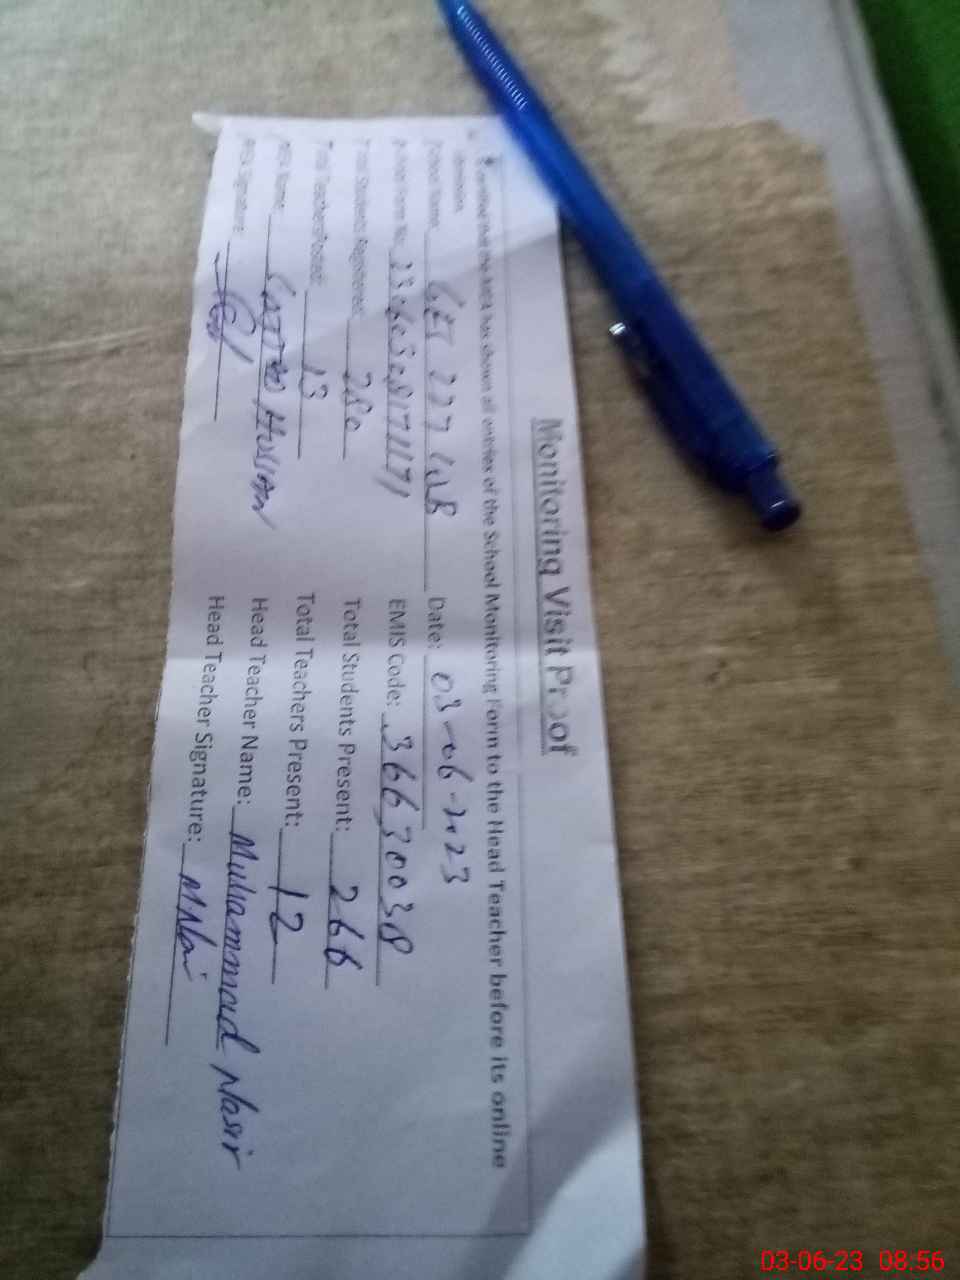 Monitoring Visit Proof
that the MEA has shown all entries of the School Monitoring Form to the Head Teacher before its online
School Name: 227 Date: 03-06-2023
EMIS Code: 36630038
Total Students Registered: 280 Total Students Present: 266
Total Teachers Posted: 13 Total Teachers Present: 12
MEA Name: Head Teacher Name: Muhammad Nasir
MEA Signature: Head Teacher Signature:
03-06-23 08:56